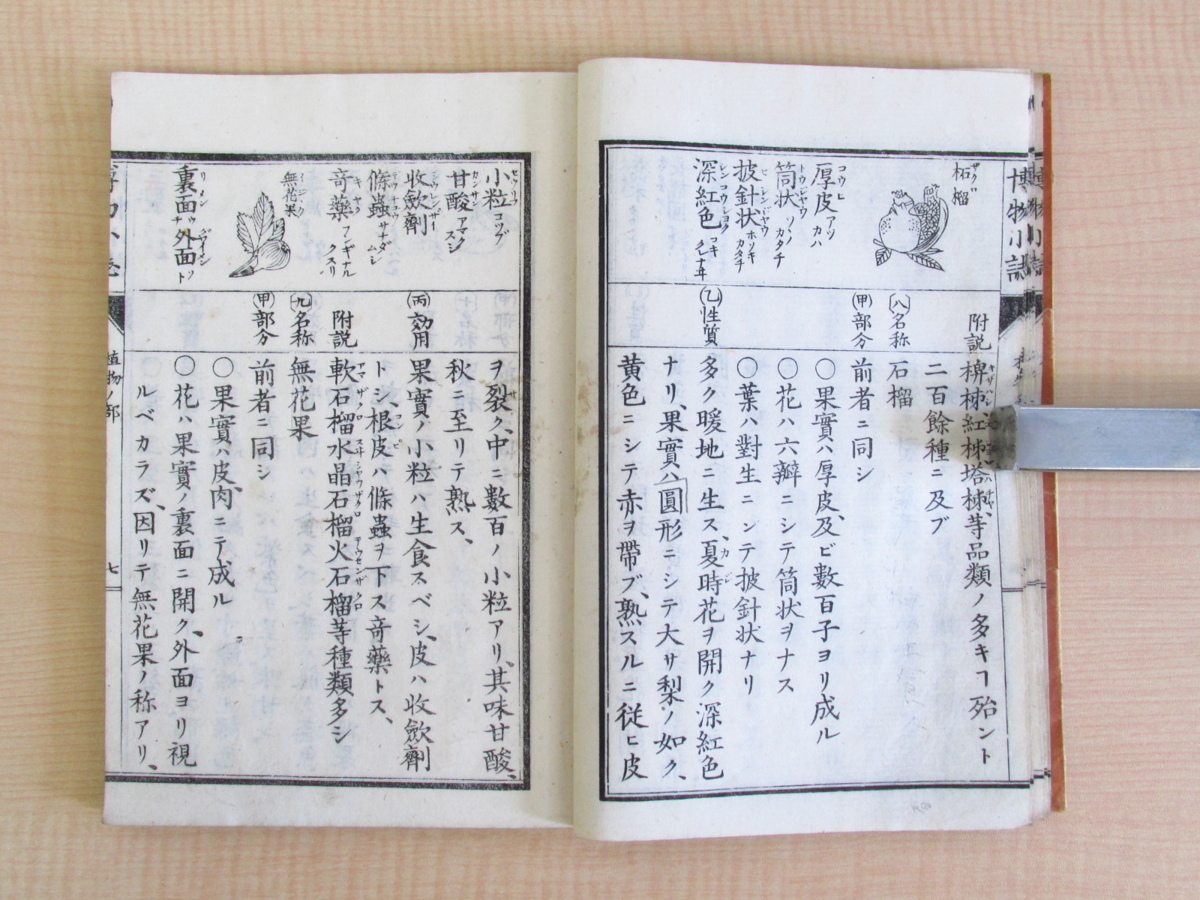 博物小誌
柘榴
ザクロ
厚皮
コウヒ
アツカハ
筒状
トウジヤウ
ツヽノカタチ
披針状
ヒシンジヤウ
ホソキカタチ
深紅色
シンコウシヨク
附説
(八)名称
(甲)部分
(乙)性質
椑柹紅柹塔柹等品類ノ多キヿ殆ント
二百餘種ニ及ブ
石榴
前者ニ同シ
〇果實ハ厚皮及ビ數百子ヨリ成ル
〇花ハ六瓣ニシテ筒状ヲナス
〇葉ハ對生ニシテ披針状ナリ
多ク暖地ニ生ス、夏時花ヲ開ク深紅色
ナリ、果實ハ圓形ニシテ大サ梨ノ如ク、
黄色ニシテ赤ヲ帶ブ、熟スルニ従ヒ皮
小粒
コツブ
甘酸
カンサン
アマクスシ
收歛劑
條蟲
サナダムシ
奇藥
フシギナルクスリ
無花果
裏面
リメン
外面
(丙)効用
附説
(九)名称
(甲)部分
ヲ裂ク、中ニ數百ノ小粒アリ、其味甘酸、
秋ニ至リテ熟ス、
果實ノ小粒ハ生食スベシ、皮ハ收歛劑
トシ、根皮ハ條蟲ヲ下ス奇藥トス、
軟石榴水晶石榴火石榴等種類多シ
無花果
前者ニ同シ
〇果實ハ皮肉ニテ成ル
〇花ハ果實ノ裏面ニ開ク、外面ヨリ視
ルベカラズ、因リテ無花果ノ称アリ、
植物ノ部
七